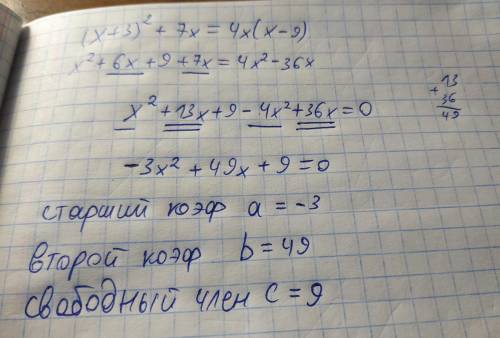 (x+3)² + 7x = 4x(x-9)
x² + 6x + 9 + 7x = 4x² - 36x
x² + 13x + 9 - 4x² + 36x = 0
+ 13
36
49
-3x² + 49x + 9 = 0
старший коэф a = -3
второй коэф b = 49
свободный член c = 9